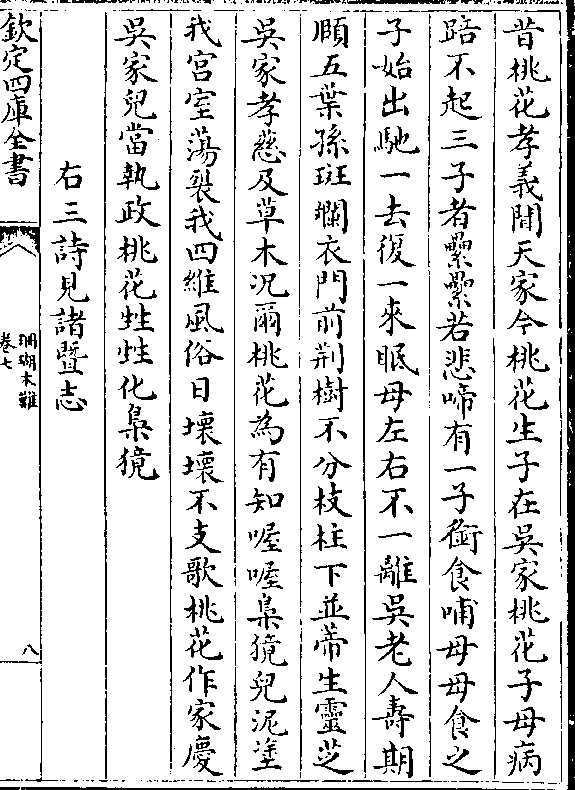 昔桃花孝義聞天家今桃花生子在吳家桃花子母病
踣不起三子者纍纍若悲啼有一子銜食哺母母食之
子始出馳一去復一來眠母左右不一離吳老人壽期
頤五葉孫斑斕衣門前荆樹不分枝柱下並蒂生靈芝
吳家孝慈及草木況爾桃花為有知喔喔梟獍兒泥塗
我宮室蕩裂我四維風俗日壞壞不支歌桃花作家慶
吳家兒當執政桃花甡甡化梟獍
右三詩見諸暨志
欽定四庫全書
珊瑚木難
卷七
八